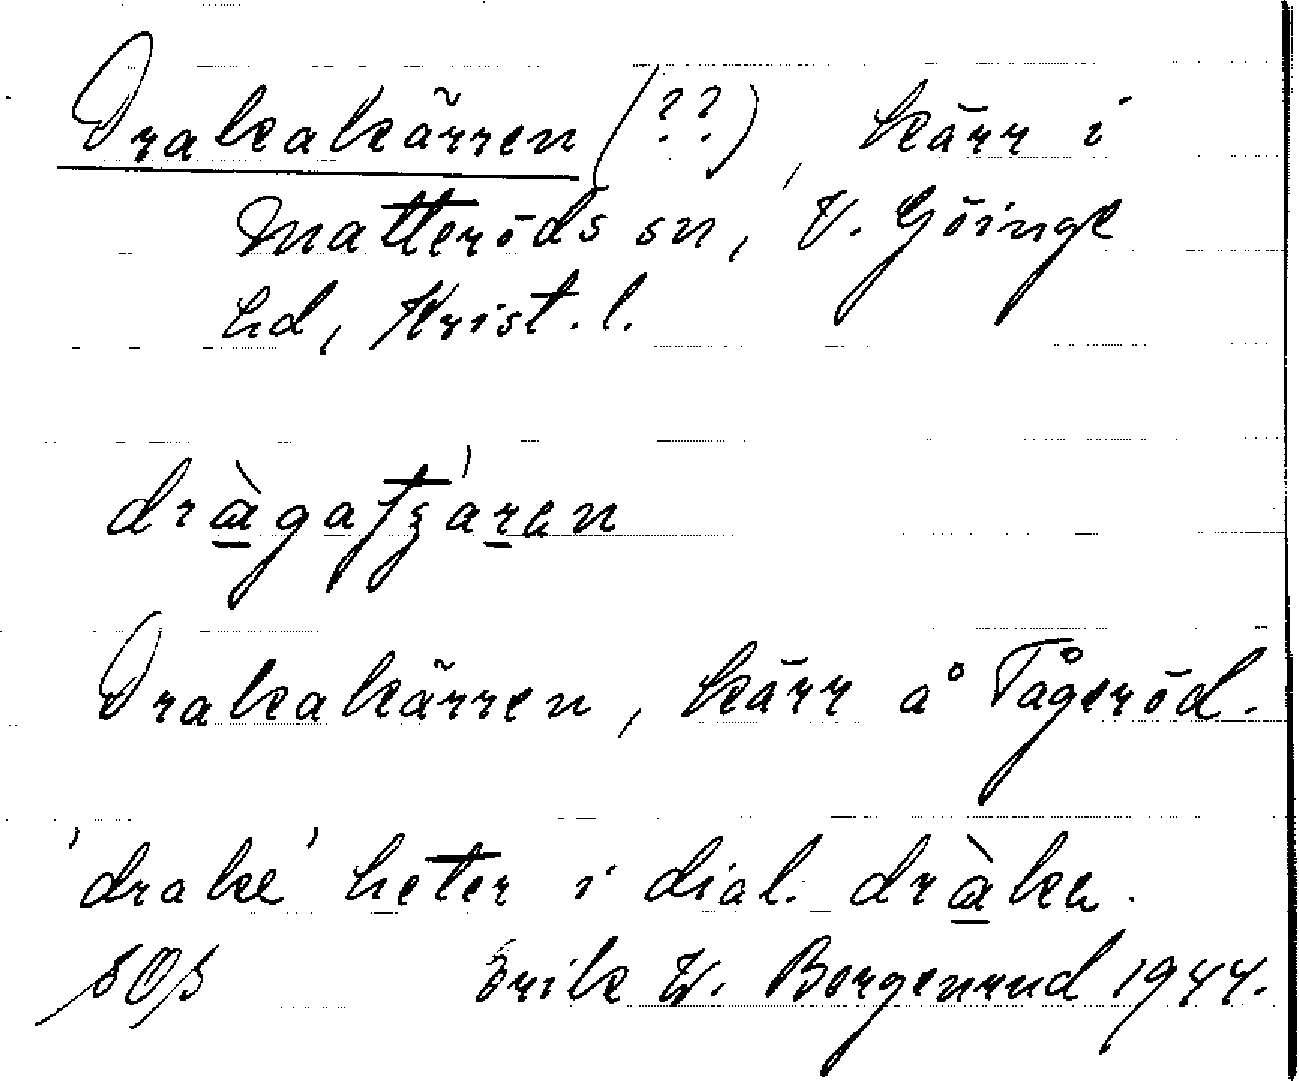 Drakakärren (??), kärr i
Matteröds sn, V. Göinge
hd, Krist. l.
dràgatʒáren
Drakakärren, kärr å Tågeröd.
'drake' heter i dial. dràka.
SOS Erik W. Borgenrud 1944.